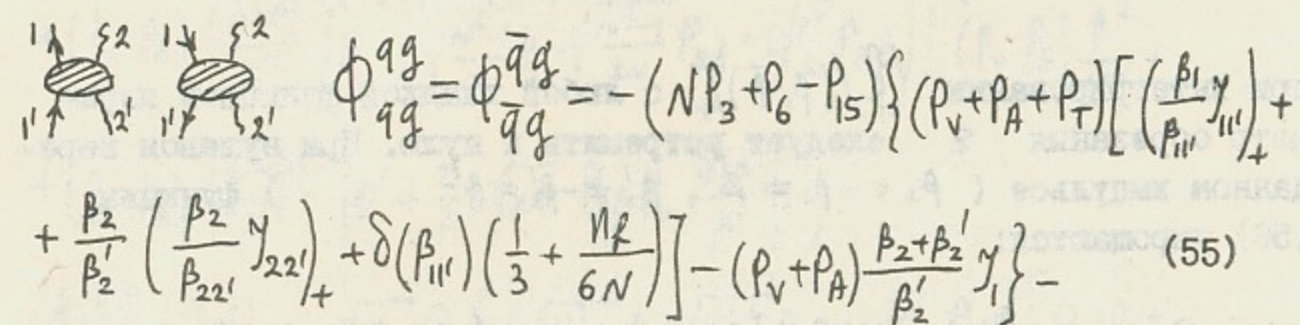 1 2 1 2 1' 2' 1' 2' Φ^{qg}_{qg} = Φ^{q̄g}_{q̄g} = − (NP_3 + P_6 − P_{15}) { (P_V + P_A + P_T) [ (β_1/β_{11'} 𝒴_{11'})_+ +
+ β_2/β_2' (β_2/β_{22'} 𝒴_{22'})_+ + δ(β_{11'}) (1/3 + n_f/6N) ] − (P_V + P_A) (β_2 + β_2')/β_2' 𝒴_1 } − (55)